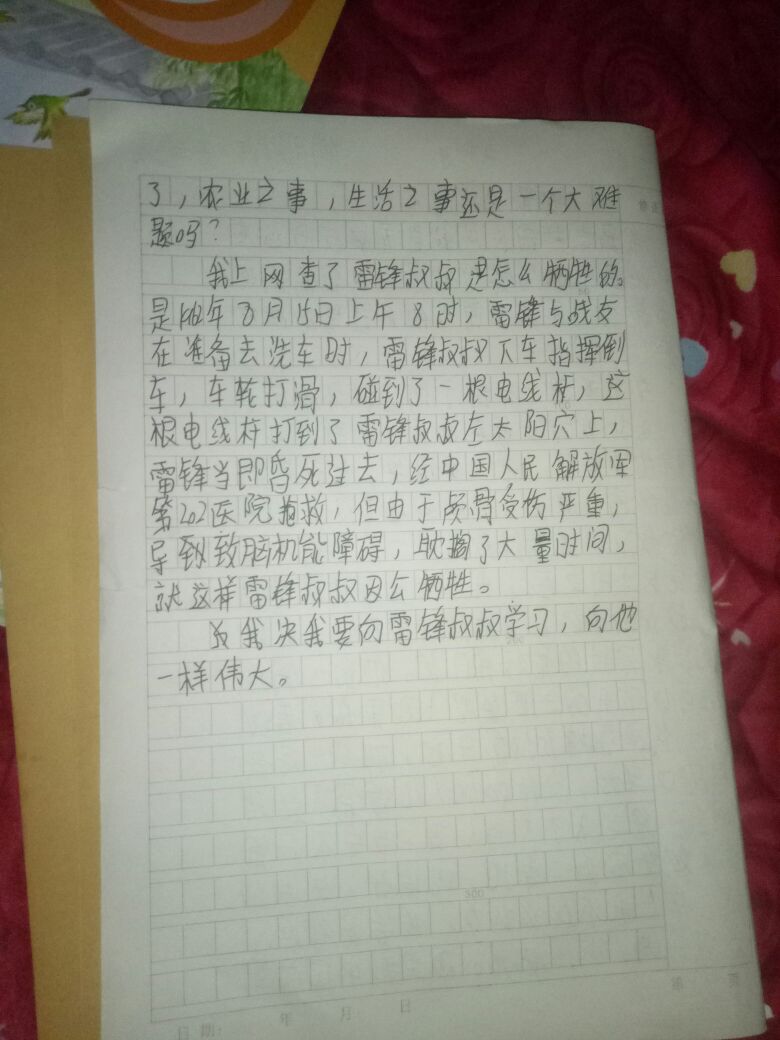 了，农业之事，生活之事还是一个大难
题吗？
我上网查了雷锋叔叔是怎么牺牲的。
是1962年8月15日上午8时，雷锋与战友
在准备去洗车时，雷锋叔叔下车指挥倒
车，车轮打滑，碰到了一根电线杆，这
根电线杆打到了雷锋叔叔左太阳穴上，
雷锋当即昏死过去，经中国人民解放军
第202医院抢救，但由于颅骨受伤严重，
导致致脑机能障碍，耽搁了大量时间，
就这样雷锋叔叔因公牺牲。
我决我要向雷锋叔叔学习，向他
一样伟大。
300
第 页
日期： 年 月 日